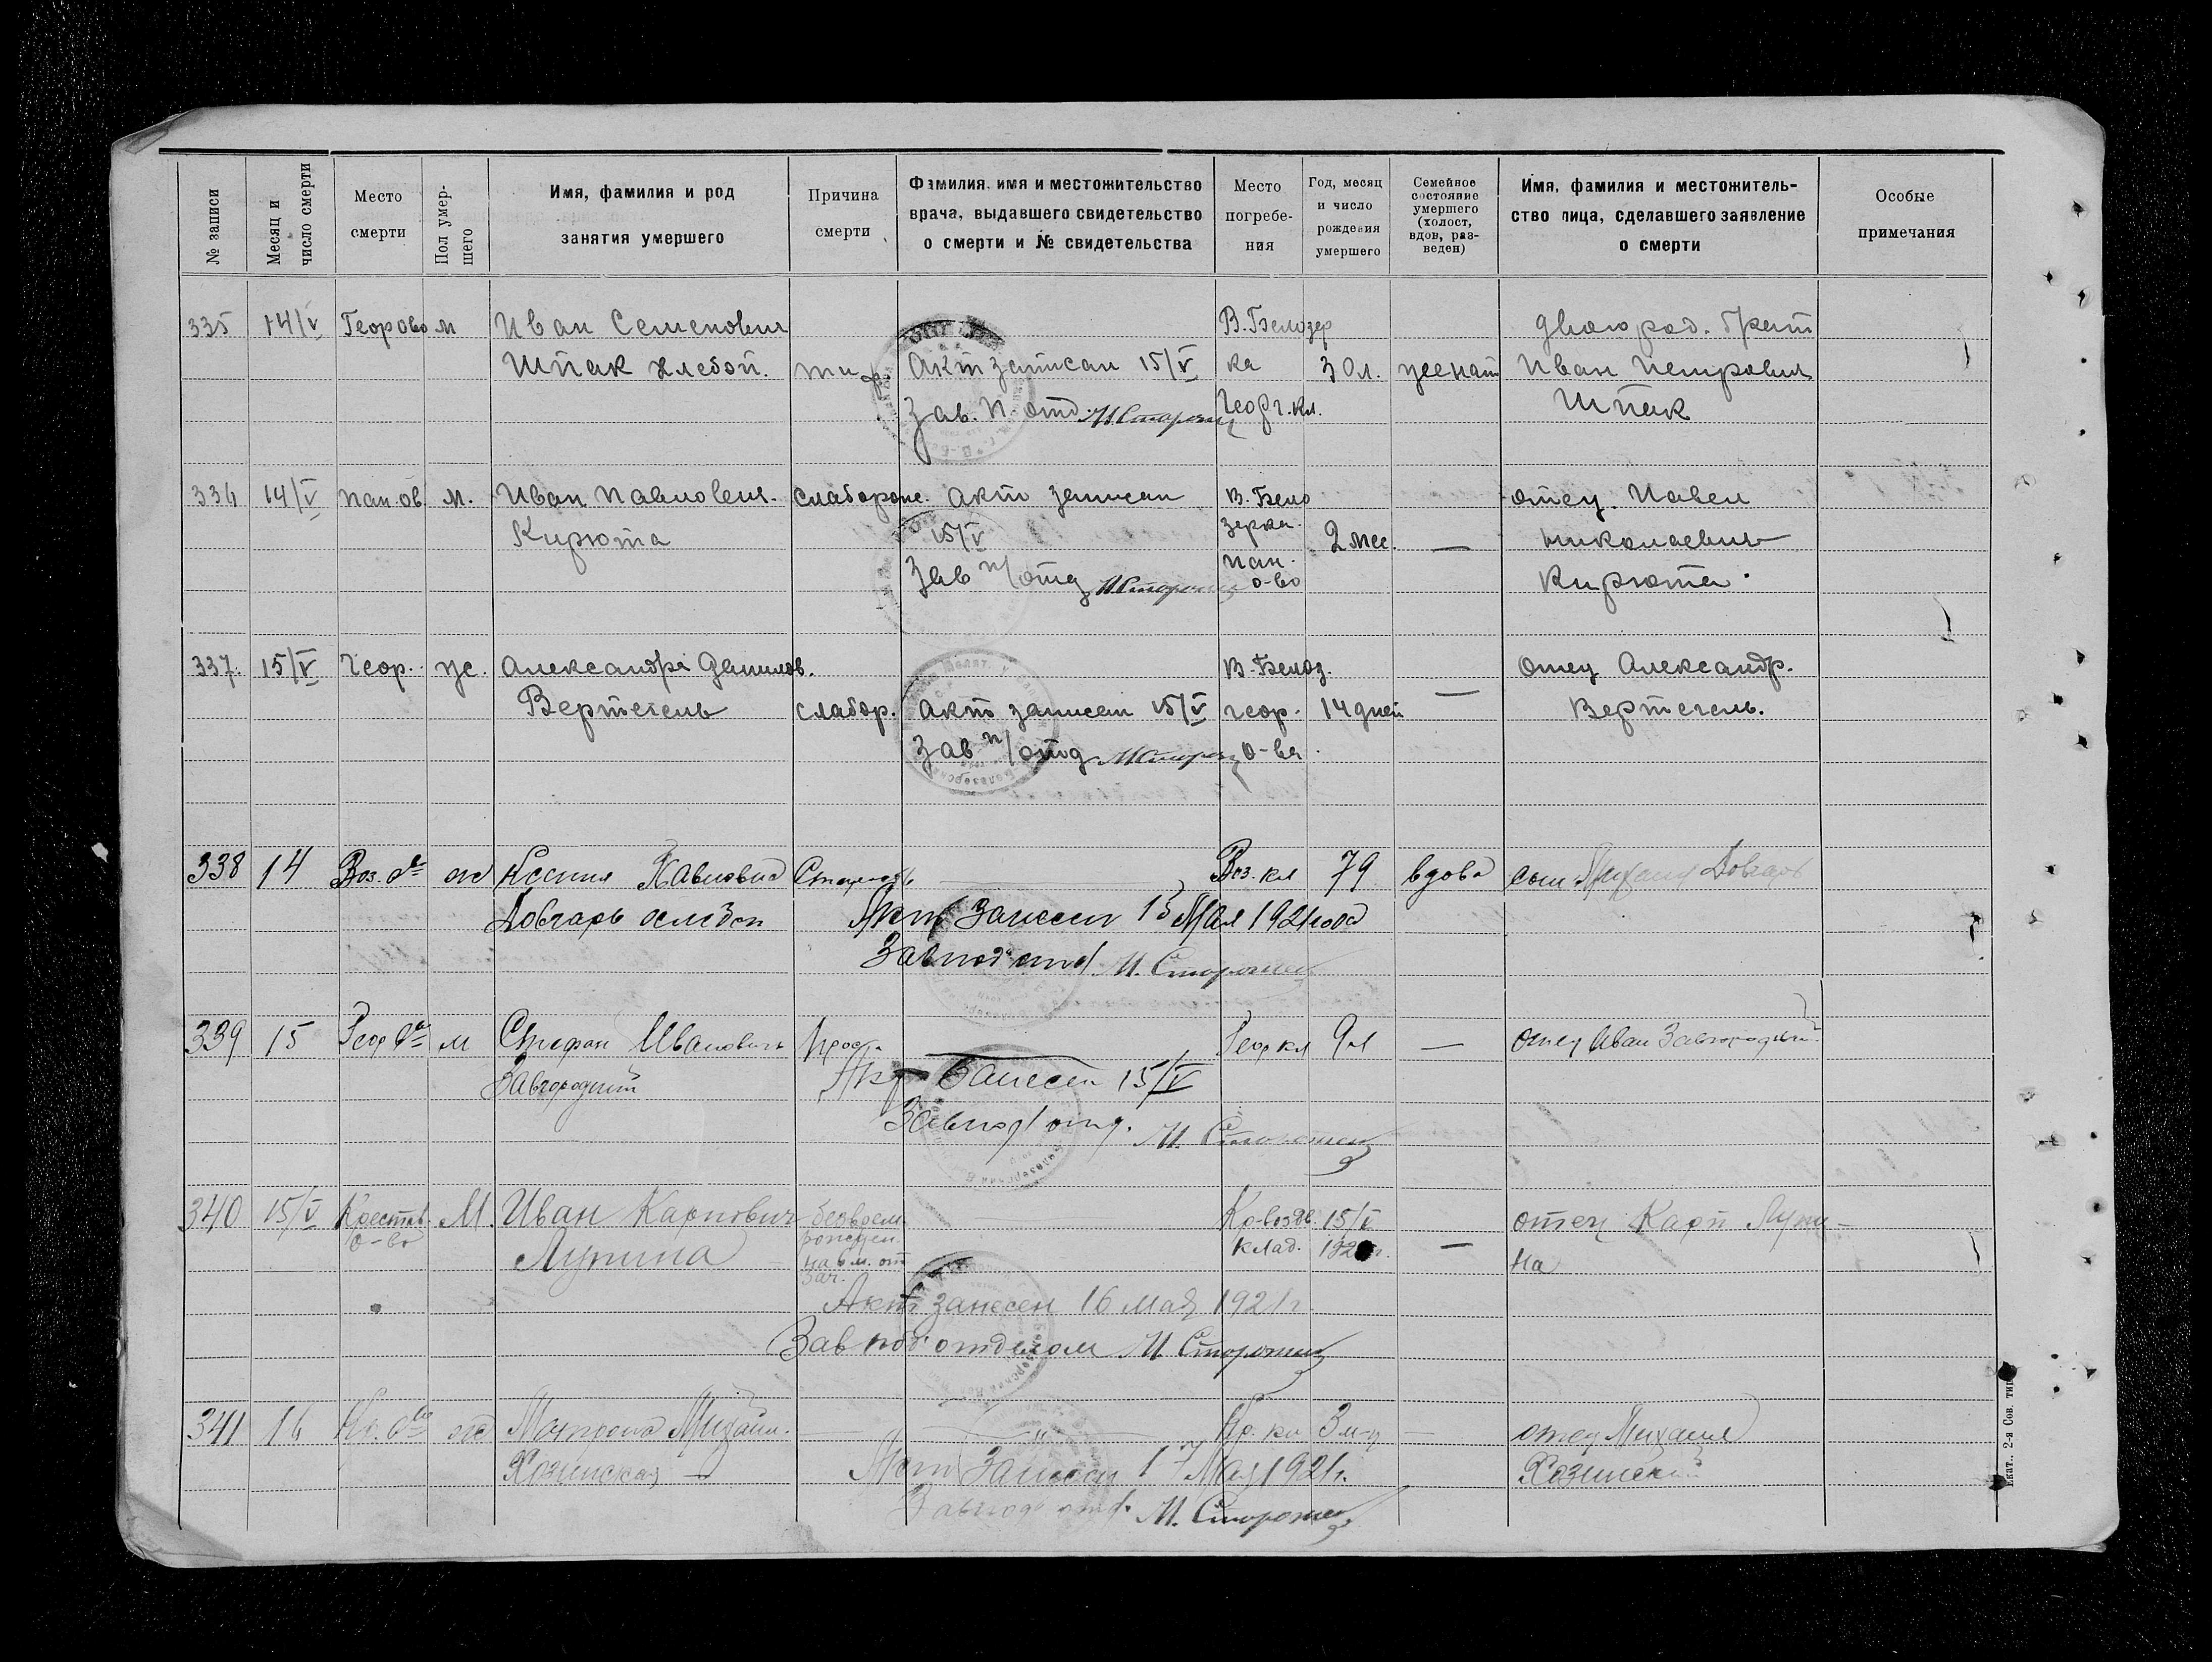 № записи
Месяц и число смерти
Место смерти
Пол умершего
Имя, фамилия и род занятия умершего
Причина смерти
Фамилия, имя и местожительство врача, выдавшего свидетельство о смерти и № свидетельства
Место погребения
Год, месяц и число рождения умершего
Семейное состояние умершего (холост, вдов, разведен)
Имя, фамилия и местожительство лица, сделавшего заявление о смерти
Особые примечания
335 14/V м Иван Семенович В. Белозер двоюрод. брат
Шпак хлебоп. тиф. Акт записан 15/V ка 30 л. женат Иван Петрович
Зав. п. отд. И. Сторож Георг. кл. Шпак
336 14/V Пан. ов. м. Иван Павлович слаборож. Акт записан В. Бело отец Павел
Кирюта 15/V зерка 2 мес. — Николаевич
Зав п/отд И. Сторож Пан. о-во Кирюта
337. 15/V Геор. ж. Александра Данилов. В. Белоз. — отец Александр.
Вертегель слабор. Акт записан 15/V геор. 14 дней Вертегель.
Зав п/отд И. Сторож о-ва
338 14 Воз. о-в ж Ксения Павловна Старость Воз. кл 79 вдова сын Михаил Довгарь
Довгарь Акт занесен 15 Мая 1921 года
Зав под отд. И. Сторож
339 15 Геор о-в м Стефан Иванович Геор кл 9 л — отец Иван Завгородний
Завгородний Акт Занесен 15/V
Завпод отд. И. Сторож
340 15/V Крестов о-во М. Иван Карпович безврем. Кр-воздв. 15/V отец Карп Лупи-
Лупина рожден. клад. — на
Акт занесен 16 мая 1921 г.
Зав под отделом И. Сторож
341 16 Кр. о-во ж Матрона Михайл. — Кр. кл 3 м-ц — отец Михаил
Хозинская Акт Занесен 17 Мая 1921 г. Хозинский
Завпод отд. И. Сторож
Екат., 2-я Сов. тип.